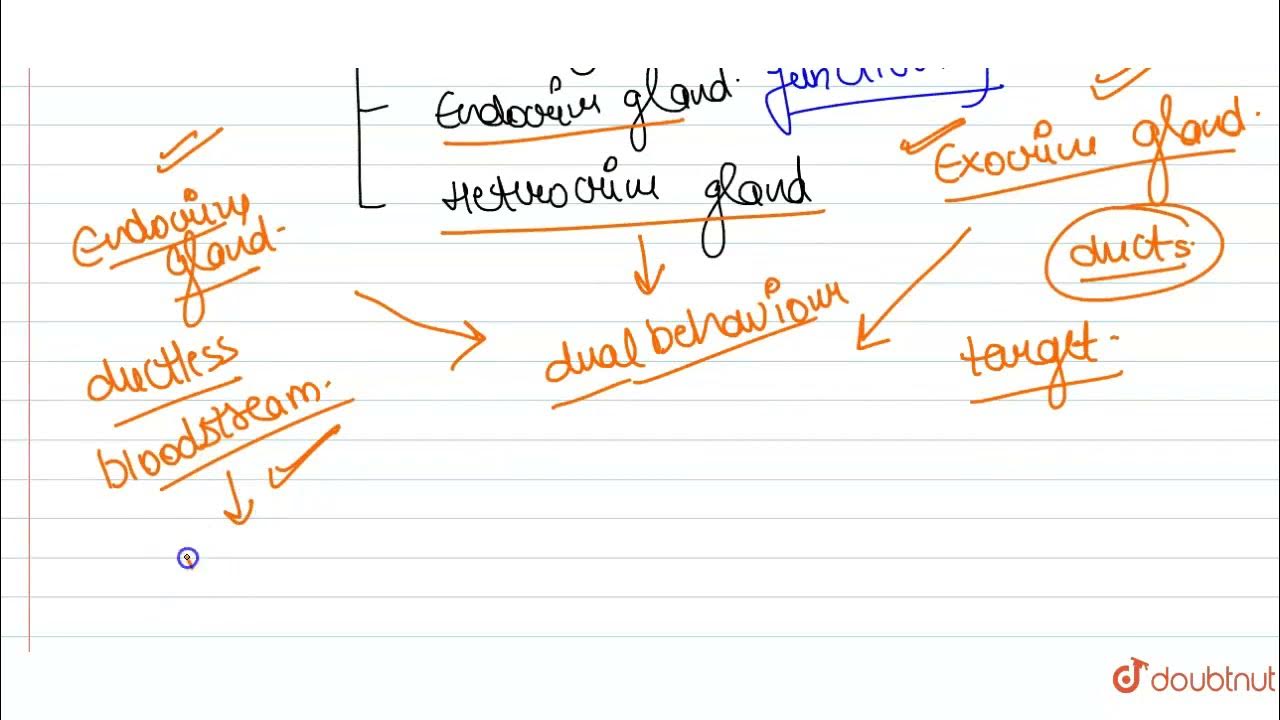 Endocrine gland.
Heterocrine gland
Exocrine gland.
ducts.
target.
Endocrine
gland.
ductless
bloodstream.
dual behaviour
doubtnut